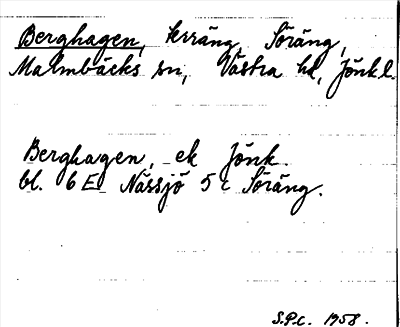 Berghagen, krräng, Söräng,
Malmbäcks sn, Västra hd, Jönk.l.
Berghagen, ek Jönk.
bl. 6 E Nässjö 5 c Söräng.
S.P.C. 1958.